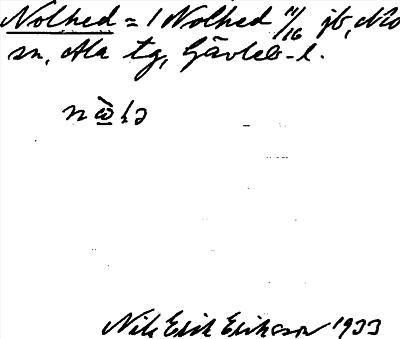 Nolhed = 1 Nolhed 11/16 jb, Mo
sn, Ala tg, Gävleb-l.
Nils Erik Erikson 1933